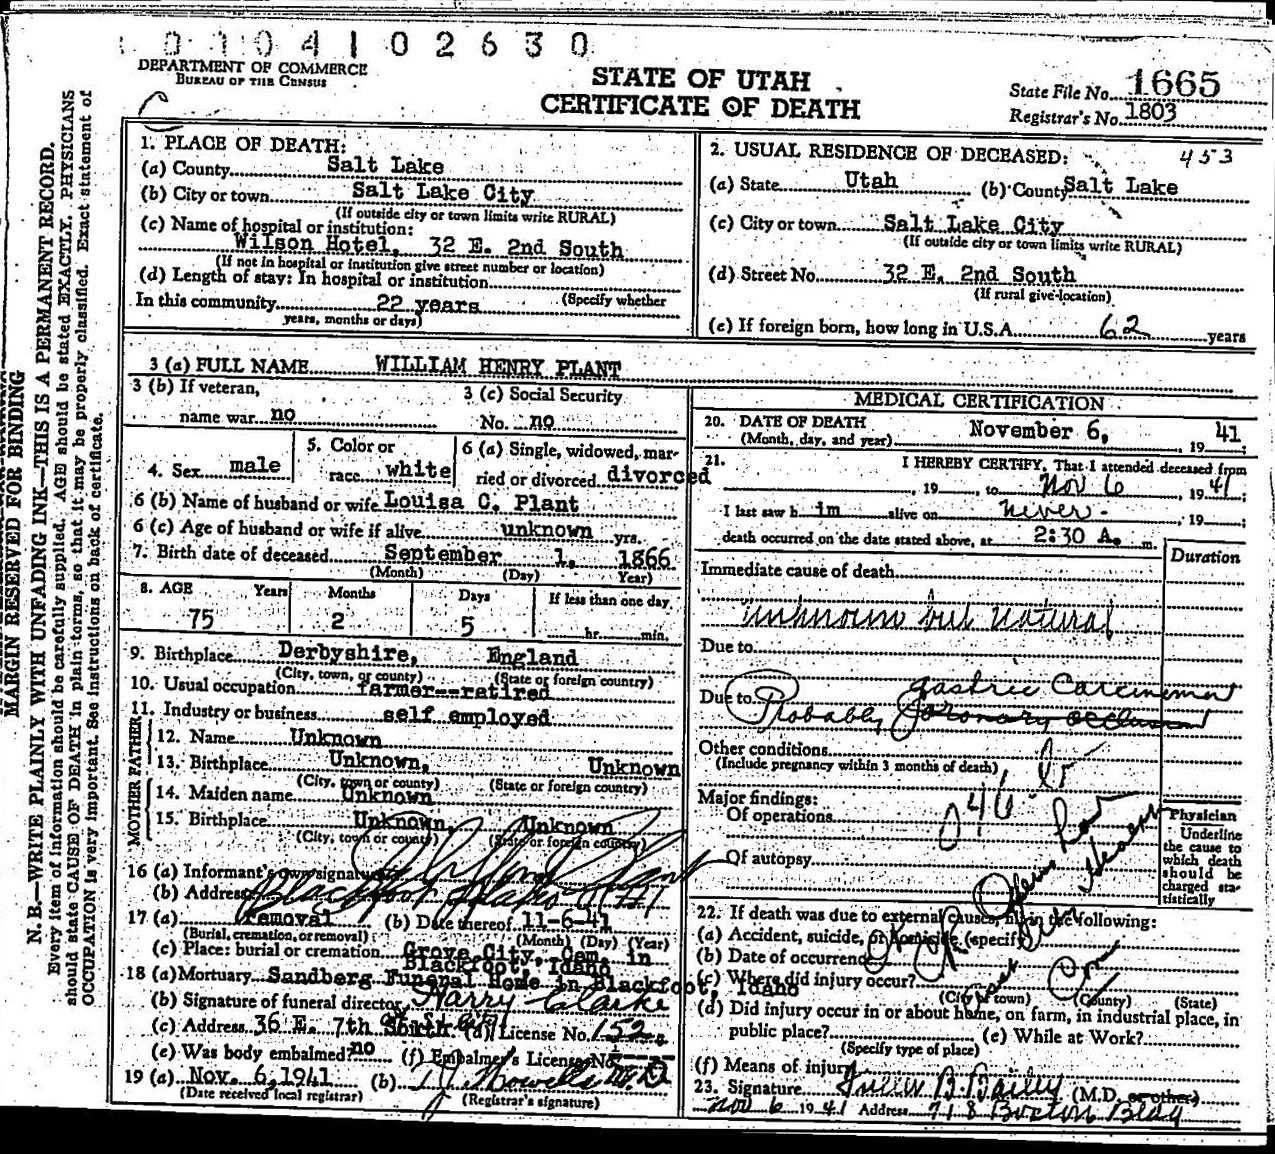 0 1 0 4 1 0 2 6 3 0
DEPARTMENT OF COMMERCE
BUREAU OF THE CENSUS
STATE OF UTAH
CERTIFICATE OF DEATH
State File No. 1665
Registrar's No. 1803
MARGIN RESERVED FOR BINDING
N. B.—WRITE PLAINLY WITH UNFADING INK—THIS IS A PERMANENT RECORD.
Every item of information should be carefully supplied. AGE should be stated EXACTLY. PHYSICIANS
should state CAUSE OF DEATH in plain terms, so that it may be properly classified. Exact statement of
OCCUPATION is very important. See instructions on back of certificate.
1. PLACE OF DEATH:
(a) County Salt Lake
(b) City or town Salt Lake City
(If outside city or town limits write RURAL)
(c) Name of hospital or institution:
Wilson Hotel, 32 E. 2nd South
(If not in hospital or institution give street number or location)
(d) Length of stay: In hospital or institution
(Specify whether
In this community 22 years
years, months or days)
2. USUAL RESIDENCE OF DECEASED: 453
(a) State Utah (b) County Salt Lake
(c) City or town Salt Lake City
(If outside city or town limits write RURAL)
(d) Street No. 32 E. 2nd South
(If rural give location)
(e) If foreign born, how long in U.S.A. 62 years
3 (a) FULL NAME WILLIAM HENRY PLANT
3 (b) If veteran,
name war no
3 (c) Social Security
No. no
4. Sex male
5. Color or
race white
6 (a) Single, widowed, mar-
ried or divorced divorced
6 (b) Name of husband or wife Louisa C. Plant
6 (c) Age of husband or wife if alive unknown yrs.
7. Birth date of deceased September 1, 1866
(Month) (Day) Year)
8. AGE Years Months Days If less than one day
75 2 5 hr. min.
9. Birthplace Derbyshire, England
(City, town, or county) (State or foreign country)
10. Usual occupation farmer--retired
11. Industry or business self employed
FATHER
12. Name Unknown
13. Birthplace Unknown, Unknown
(City, town or county) (State or foreign country)
MOTHER
14. Maiden name Unknown
15. Birthplace Unknown, Unknown
(City, town or county) (State or foreign country)
16 (a) Informant's own signature Plant
(b) Address Blackfoot Idaho R #1
17 (a) removal (b) Date thereof 11-6-41
(Burial, cremation, or removal) (Month) (Day) (Year)
(c) Place: burial or cremation Grove City, Cem. in
Blackfoot, Idaho
18 (a) Mortuary Sandberg Funeral Home in Blackfoot, Idaho
(b) Signature of funeral director Harry Clarke
(c) Address 36 E. 7th South (d) License No. 152
(e) Was body embalmed? no (f) Embalmer's License No.
19 (a) Nov. 6, 1941 (b)
(Date received local registrar) (Registrar's signature)
MEDICAL CERTIFICATION
20. DATE OF DEATH
(Month, day, and year) November 6, 19 41
21. I HEREBY CERTIFY, That I attended deceased from
, 19 , to Nov 6 , 19 41;
I last saw h im alive on never , 19 ;
death occurred on the date stated above, at 2:30 A. m.
Duration
Immediate cause of death
unknown but natural
Due to
gastric Carcinoma
Due to Probably Coronary occlusion
Other conditions
(Include pregnancy within 3 months of death)
046 b
Major findings:
Of operations
Of autopsy
Physician
Underline
the cause to
which death
should be
charged sta-
tistically
22. If death was due to external causes, fill in the following:
(a) Accident, suicide, or homicide (specify)
(b) Date of occurrence
(c) Where did injury occur?
(City or town) (County) (State)
(d) Did injury occur in or about home, on farm, in industrial place, in
public place? (e) While at Work?
(Specify type of place)
(f) Means of injury
23. Signature B. Bailey (M.D. or other)
Nov 6 1941 Address 718 Boston Bldg